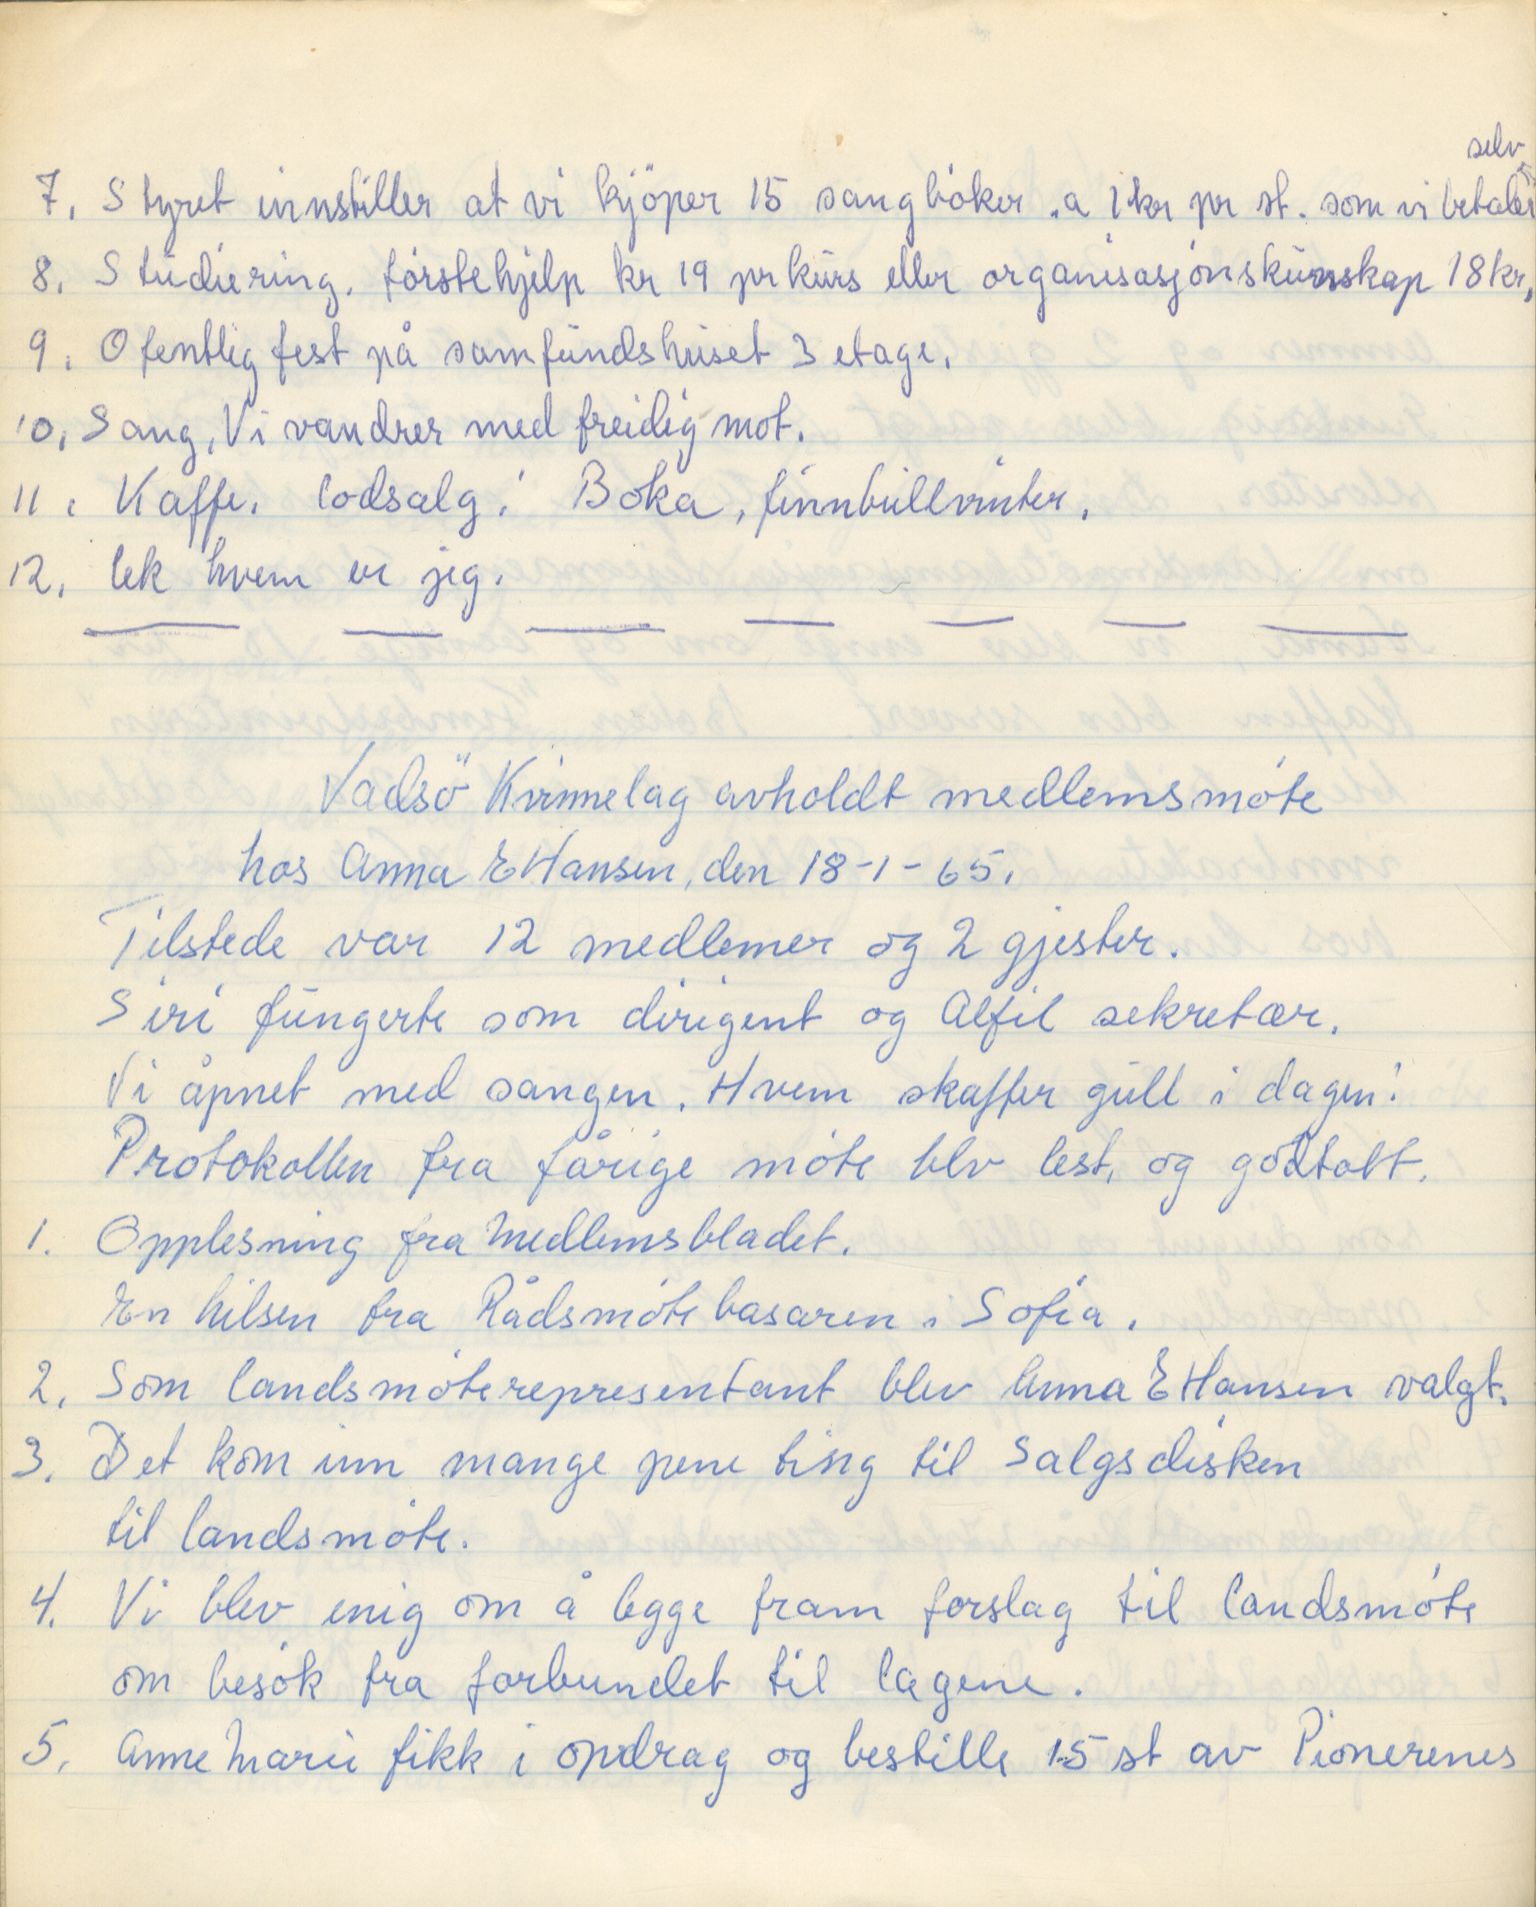 7. Styret innstiller at vi kjöper 15 sangböker .a 1 kr pr st. som vi betaler selv
8. Studiering. förstehjelp kr 19 pr kurs eller organisasjonskunskap 18 kr.
9. Ofentlig fest på samfundshuset 3 etage.
10. Sang, Vi vandrer med freidig mot.
11. Kaffe. lodsalg. Boka, finnbullvinter.
12. lek hvem er jeg.
Vadsö Kvinnelag avholdt medlemsmöte
hos Anna E Hansen, den 18-1-65.
Tilstede var 12 medlemer og 2 gjester.
Siri fungerte som dirigent og Alfil sekretær.
Vi åpnet med sangen. Hvem skaffer gull i dagen!
Protokollen fra fårige möte blv lest, og godtatt.
1. Opplesning fra Medlemsbladet.
En hilsen fra Rådsmöte basaren i Sofia.
2. Som landsmöterepresentant blev Anna E Hansen valgt.
3. Det kom inn mange pene ting til Salgsdisken
til landsmöte.
4. Vi blev enig om å legge fram forslag til landsmöte
om besök fra forbundet til lagene.
5. Anne Marie fikk i opdrag og bestille 15 st av Pionerenes